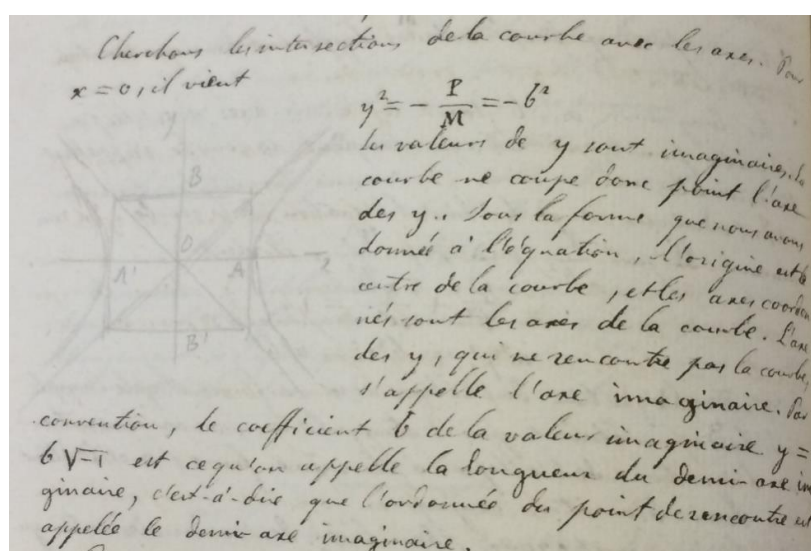 Cherchons les intersections de la courbe avec les axes. Pour
x = 0, il vient
y² = - P/M = - b²
les valeurs de y sont imaginaires. La
courbe ne coupe donc point l'axe
des y. Sous la forme que nous avons
donnée à l'équation, l'origine est le
centre de la courbe, et les axes coordon
nés sont les axes de la courbe. L'axe
des y, qui ne rencontre pas la courbe,
s'appelle l'axe imaginaire. Par
convention, le coefficient b de la valeur imaginaire y =
b√-1 est ce qu'on appelle la longueur du demi-axe im
ginaire, c'est-à-dire que l'ordonnée du point de rencontre est
appelée le demi-axe imaginaire.
B
O
A' A x
B'